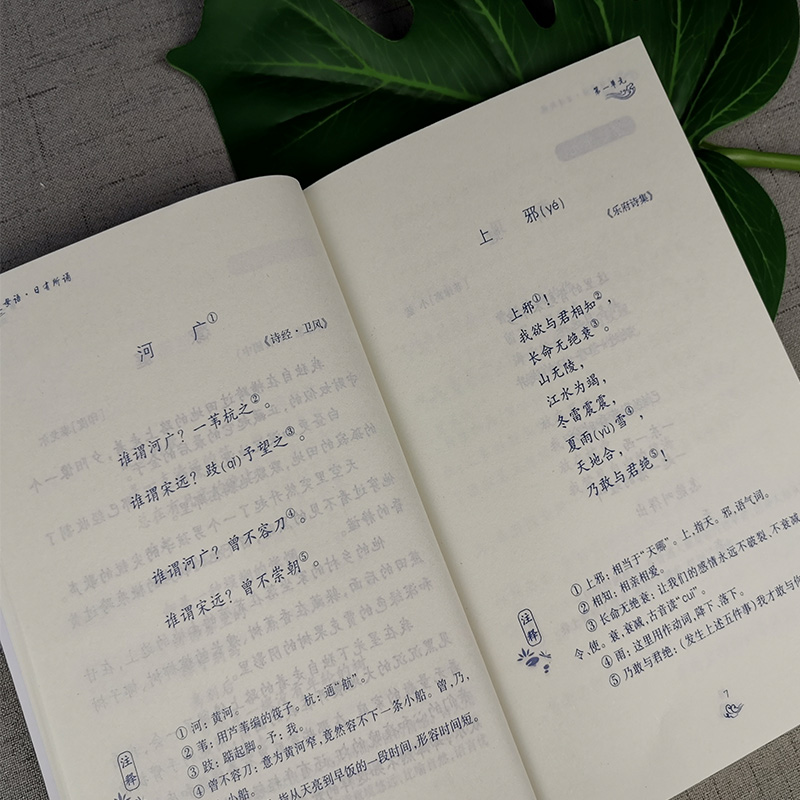 语·日有所诵
河 广①
《诗经·卫风》
谁谓河广？一苇杭之②。
谁谓宋远？跂(qǐ)予望之③。
谁谓河广？曾不容刀④。
谁谓宋远？曾不崇朝⑤。
注释
①河：黄河。
②苇：用芦苇编的筏子。杭：通“航”。
③跂：踮起脚。予：我。
④曾不容刀：意为黄河窄，竟然容不下一条小船。曾，乃，
小船。
指从天亮到早饭的一段时间，形容时间短。
第一单元
上 邪(yé)
《乐府诗集》
上邪①！
我欲与君相知②，
长命无绝衰③。
山无陵，
江水为竭，
冬雷震震，
夏雨(yù)雪④，
天地合，
乃敢与君绝⑤！
注释
①上邪：相当于“天哪”。上，指天。邪，语气词。
②相知：相亲相爱。
③长命无绝衰：让我们的感情永远不破裂，不衰减
令，使。衰，衰减，古音读“cuī”。
④雨：这里用作动词，降下、落下。
⑤乃敢与君绝：(发生上述五件事)我才敢与你
7